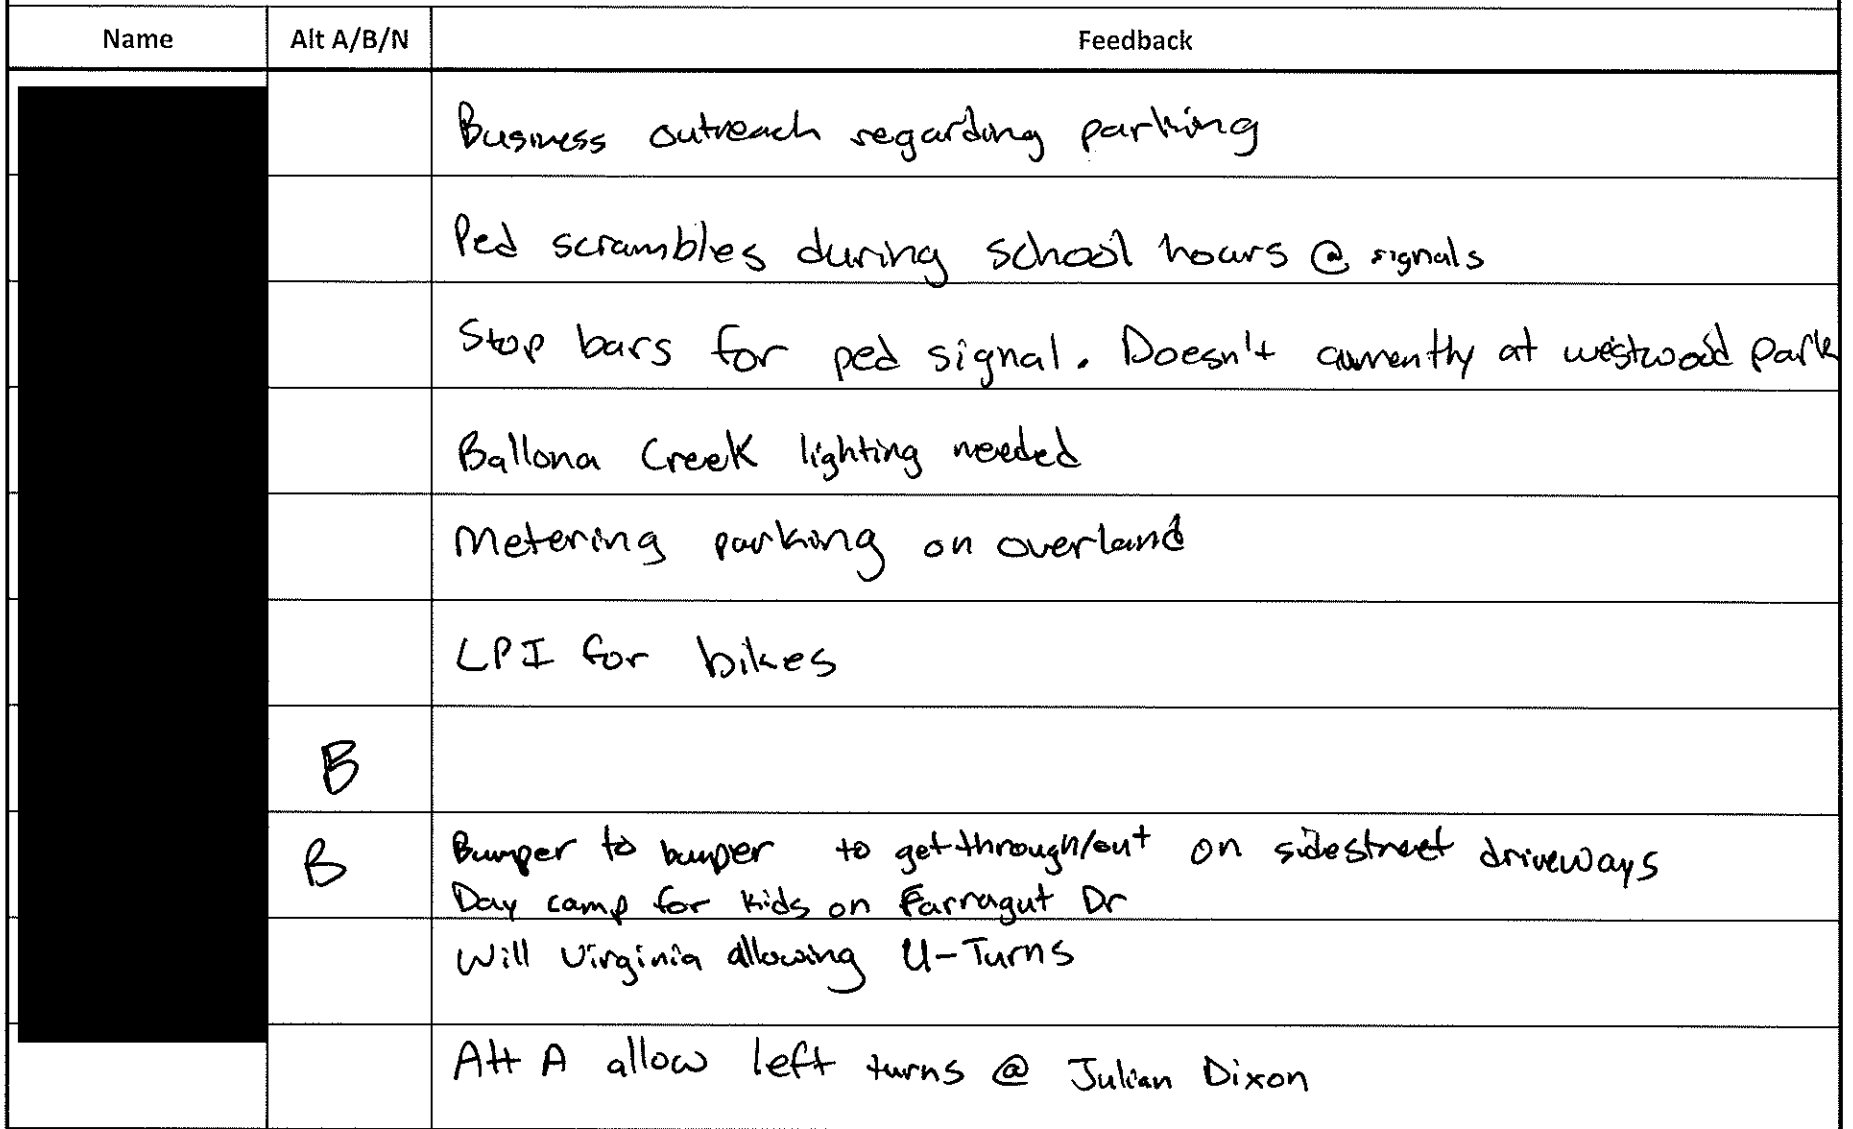 Name Alt A/B/N Feedback
Business outreach regarding parking
Ped scrambles during school hours @ signals
Stop bars for ped signal. Doesn't currently at westwood park
Ballona Creek lighting needed
Metering parking on overland
LPI for bikes
B
B Bumper to bumper to get through/out on sidestreet driveways
Day camp for kids on Farragut Dr
Will Virginia allowing U-Turns
Alt A allow left turns @ Julian Dixon